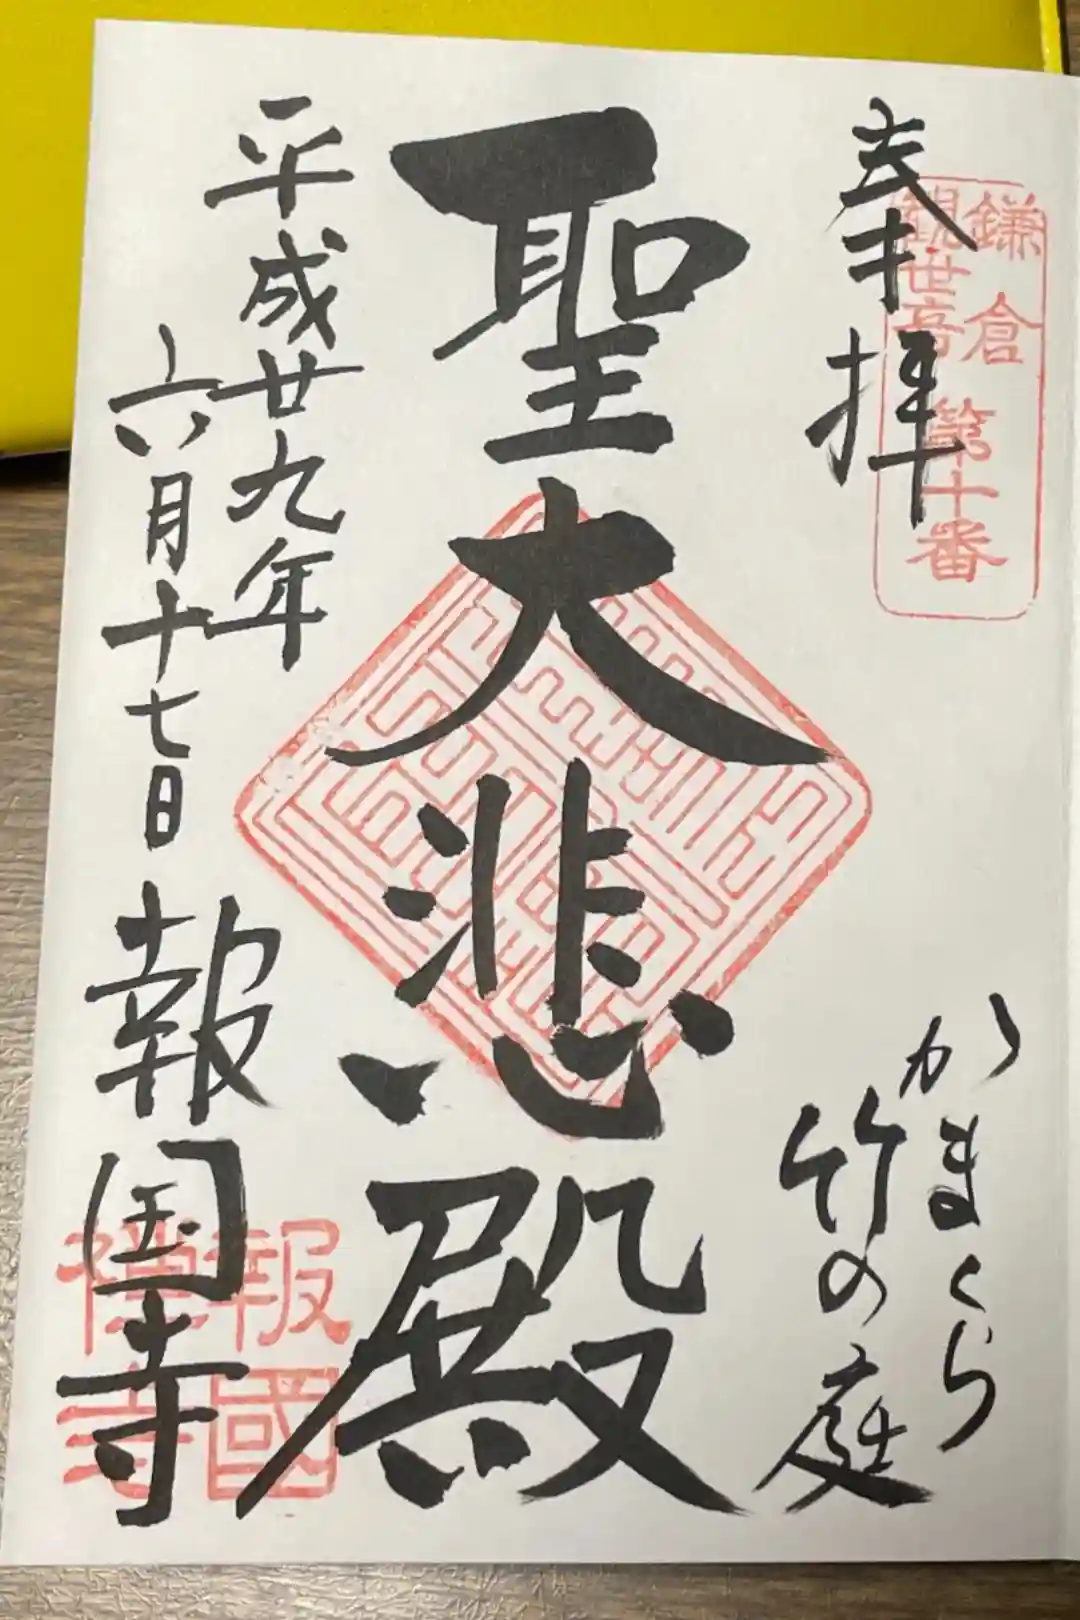 奉拝
鎌倉
観世音 第十番
かまくら
竹の庭
聖大悲殿
平成廿九年
六月十七日
報国寺
報國
禅寺